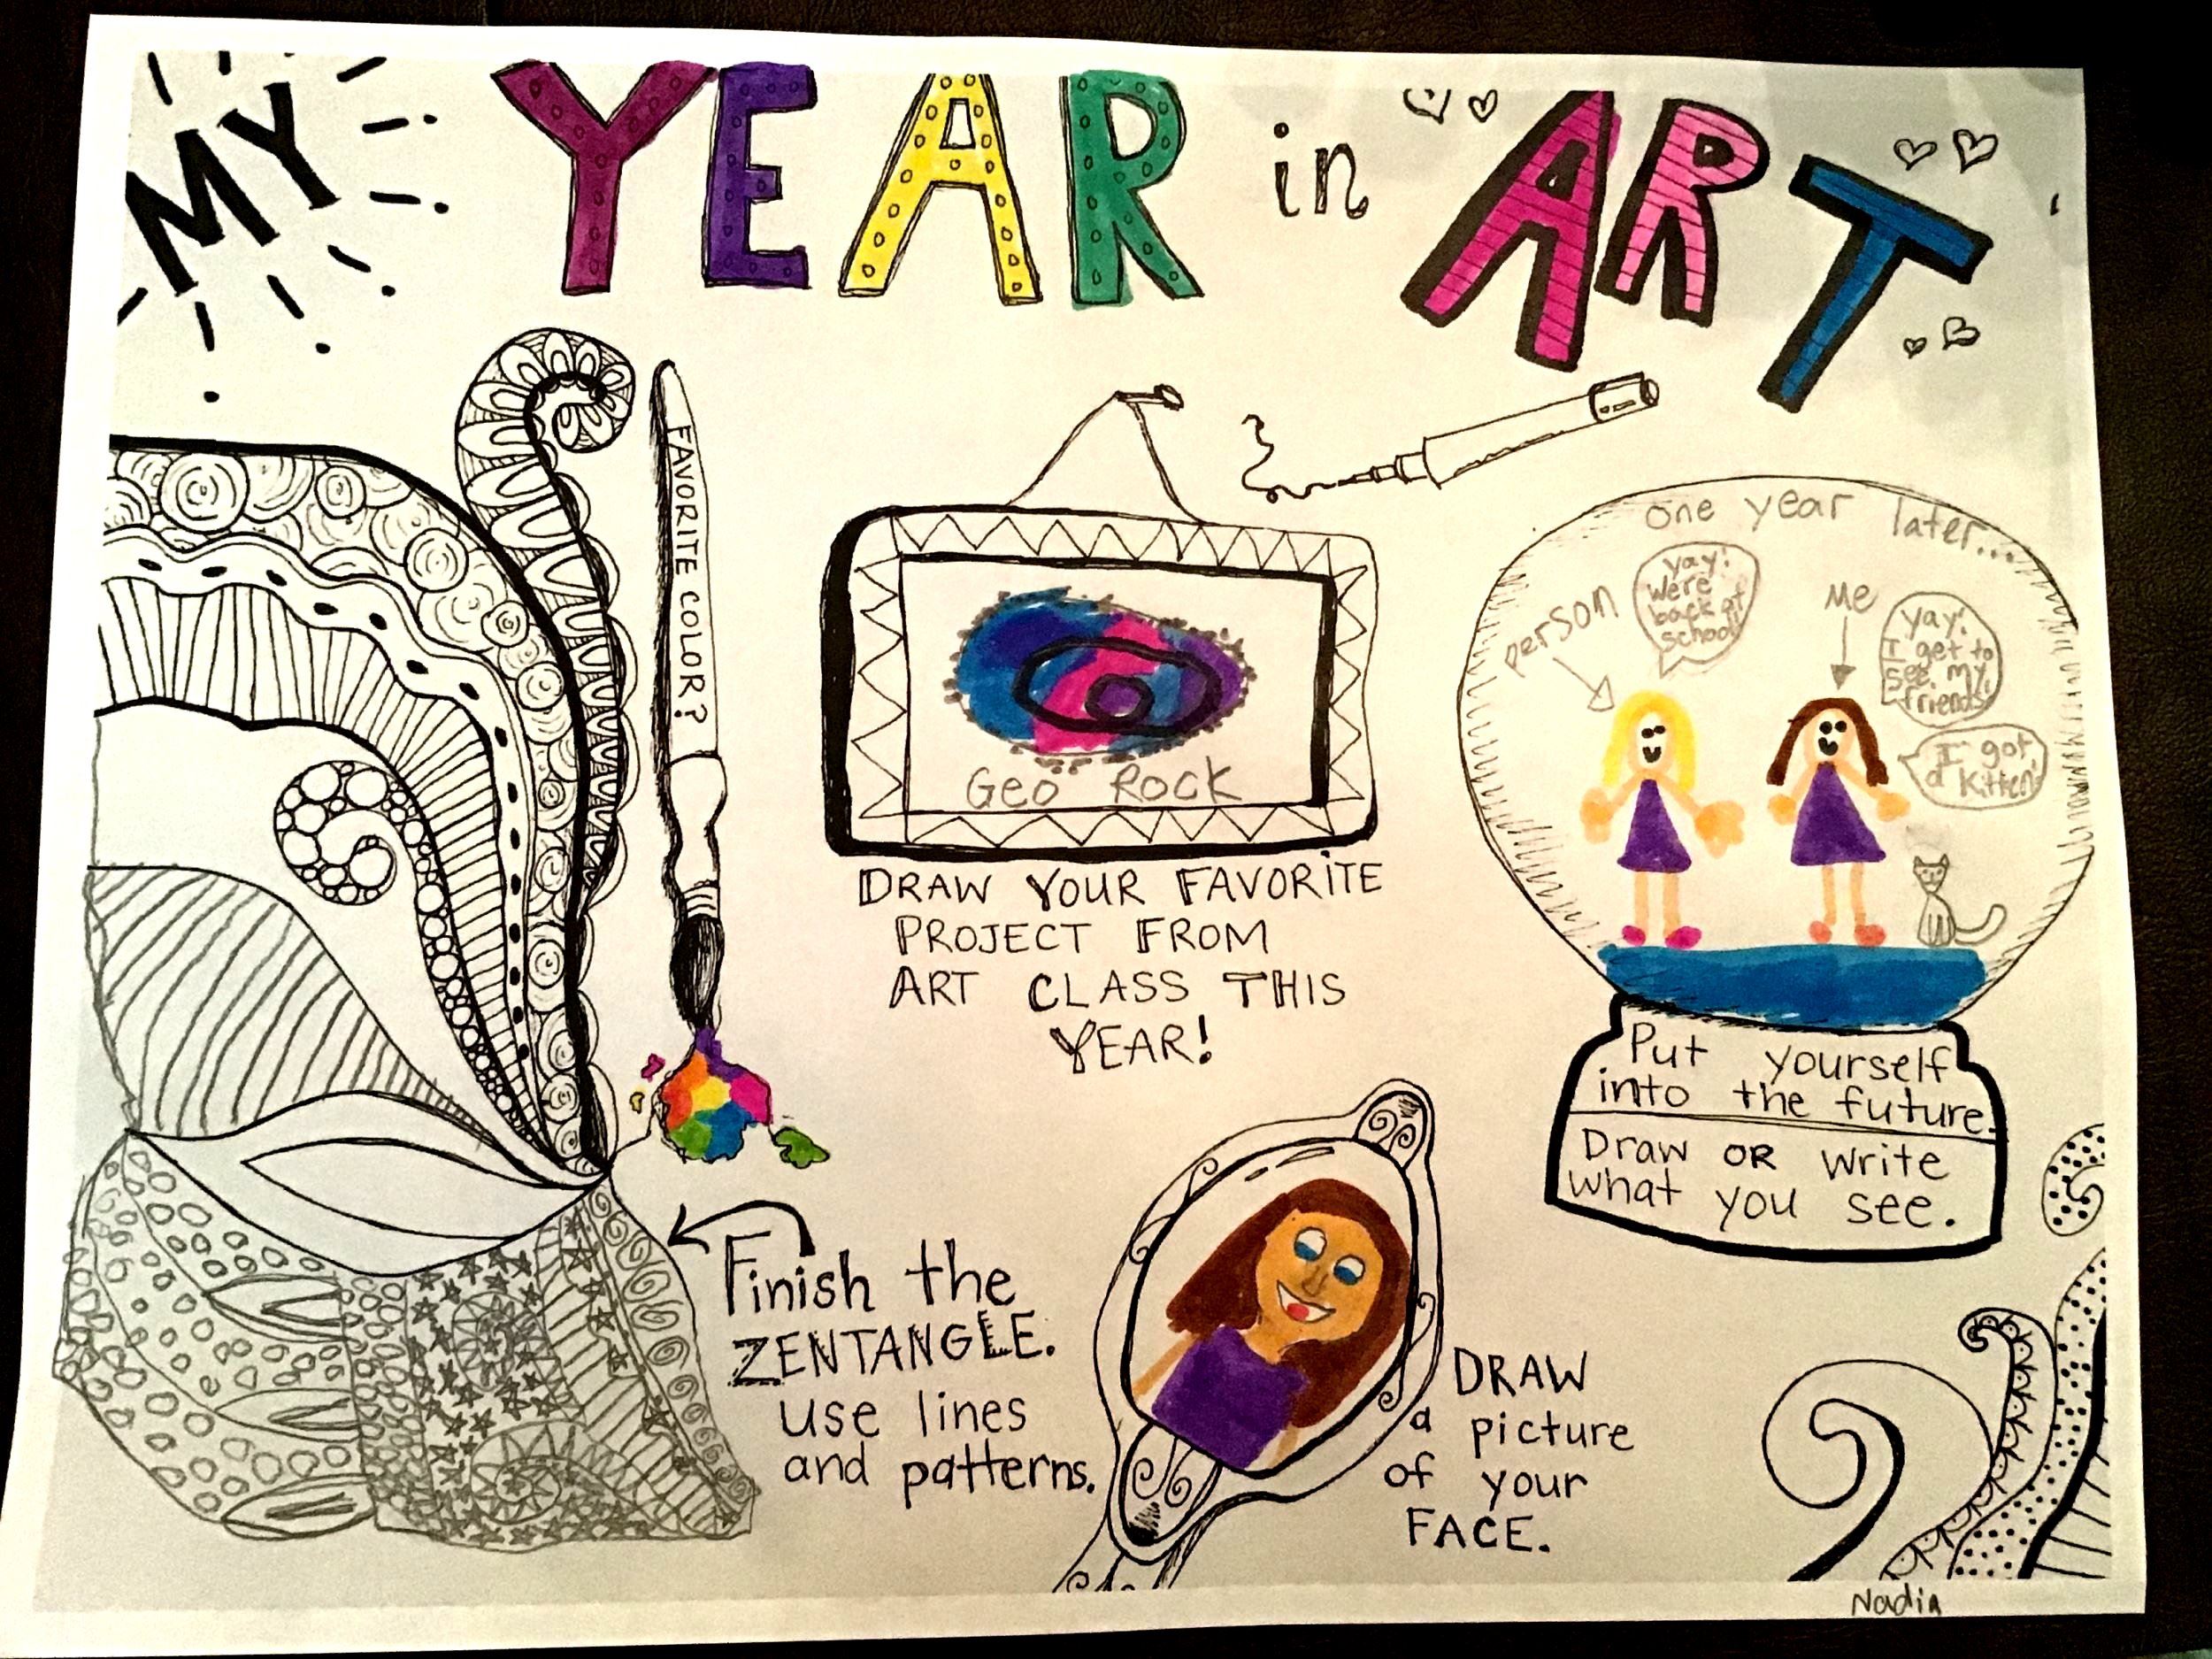 MY YEAR in ART
FAVORITE COLOR?
Geo Rock
DRAW YOUR FAVORITE
PROJECT FROM
ART CLASS THIS
YEAR!
one year later...
person
yay!
We're
back at
school!
Me
yay!
I get to
see my
friends!
I got
a kitten!
Put yourself
into the future.
Draw OR write
what you see.
Finish the
ZENTANGLE.
use lines
and patterns.
DRAW
a picture
of your
FACE.
Nadia